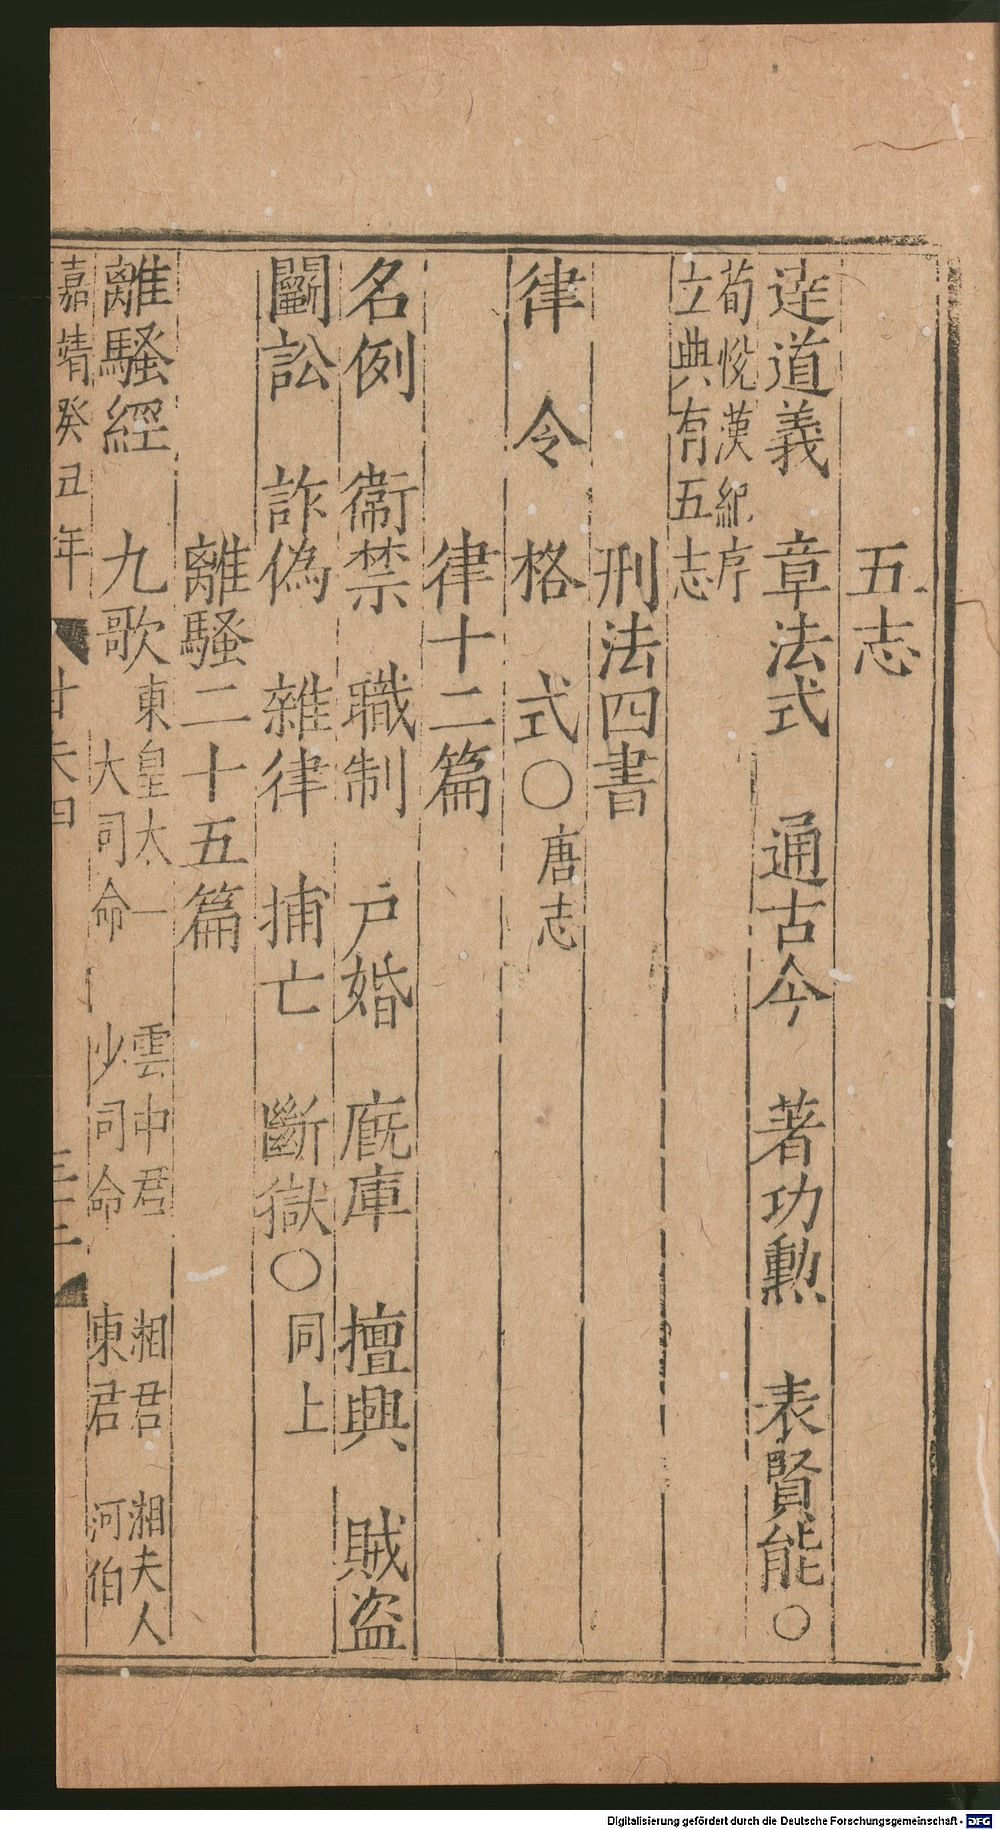 五志
達道義　章法式　通古今　著功勲　表賢能○
荀悅漢紀序
立典有五志
刑法四書
律　令　格　式○唐志
律十二篇
名例　衛禁　職制　戶婚　廐庫　擅興　賊盗
鬭訟　詐偽　雜律　捕亡　斷獄○同上
離騷二十五篇
離騷經　九歌
東皇太一　雲中君　湘君　湘夫人
大司命　少司命　東君　河伯
嘉靖癸丑年
Digitalisierung gefördert durch die Deutsche Forschungsgemeinschaft - DFG